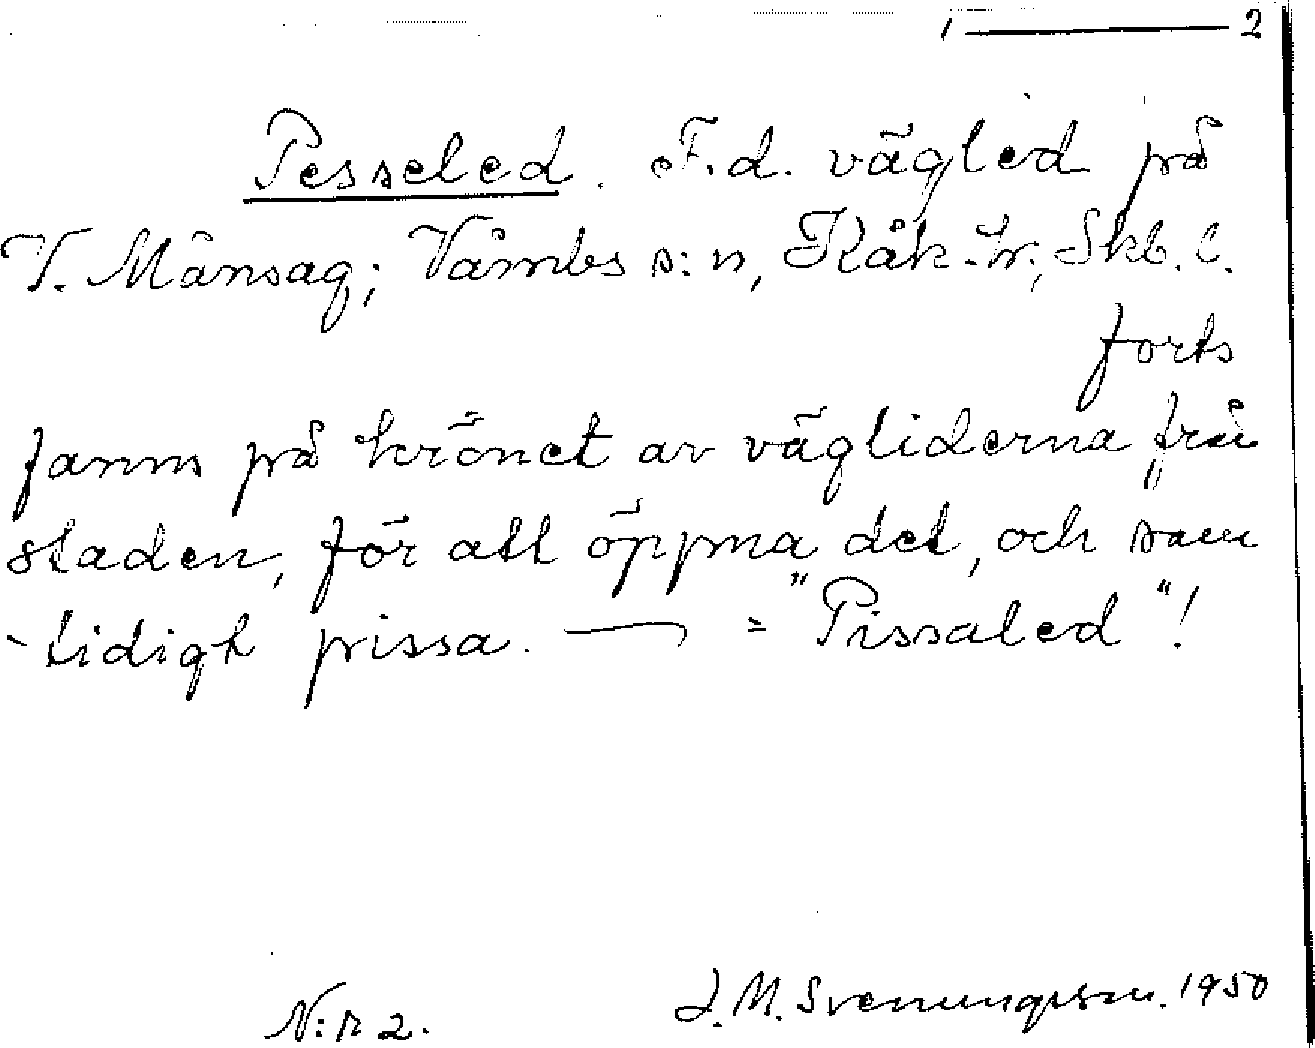 1 — 2
Pesseled. F.d. vägled på
V. Månsag; Våmbs s:n, Kåk. hr; Skb. l.
forts
fanns på krönet av vägliderna från
staden, för att öppna det, och sam
-tidigt pissa. — = "Pissaled"!
N:r 2. J. M. Svenungsson. 1950